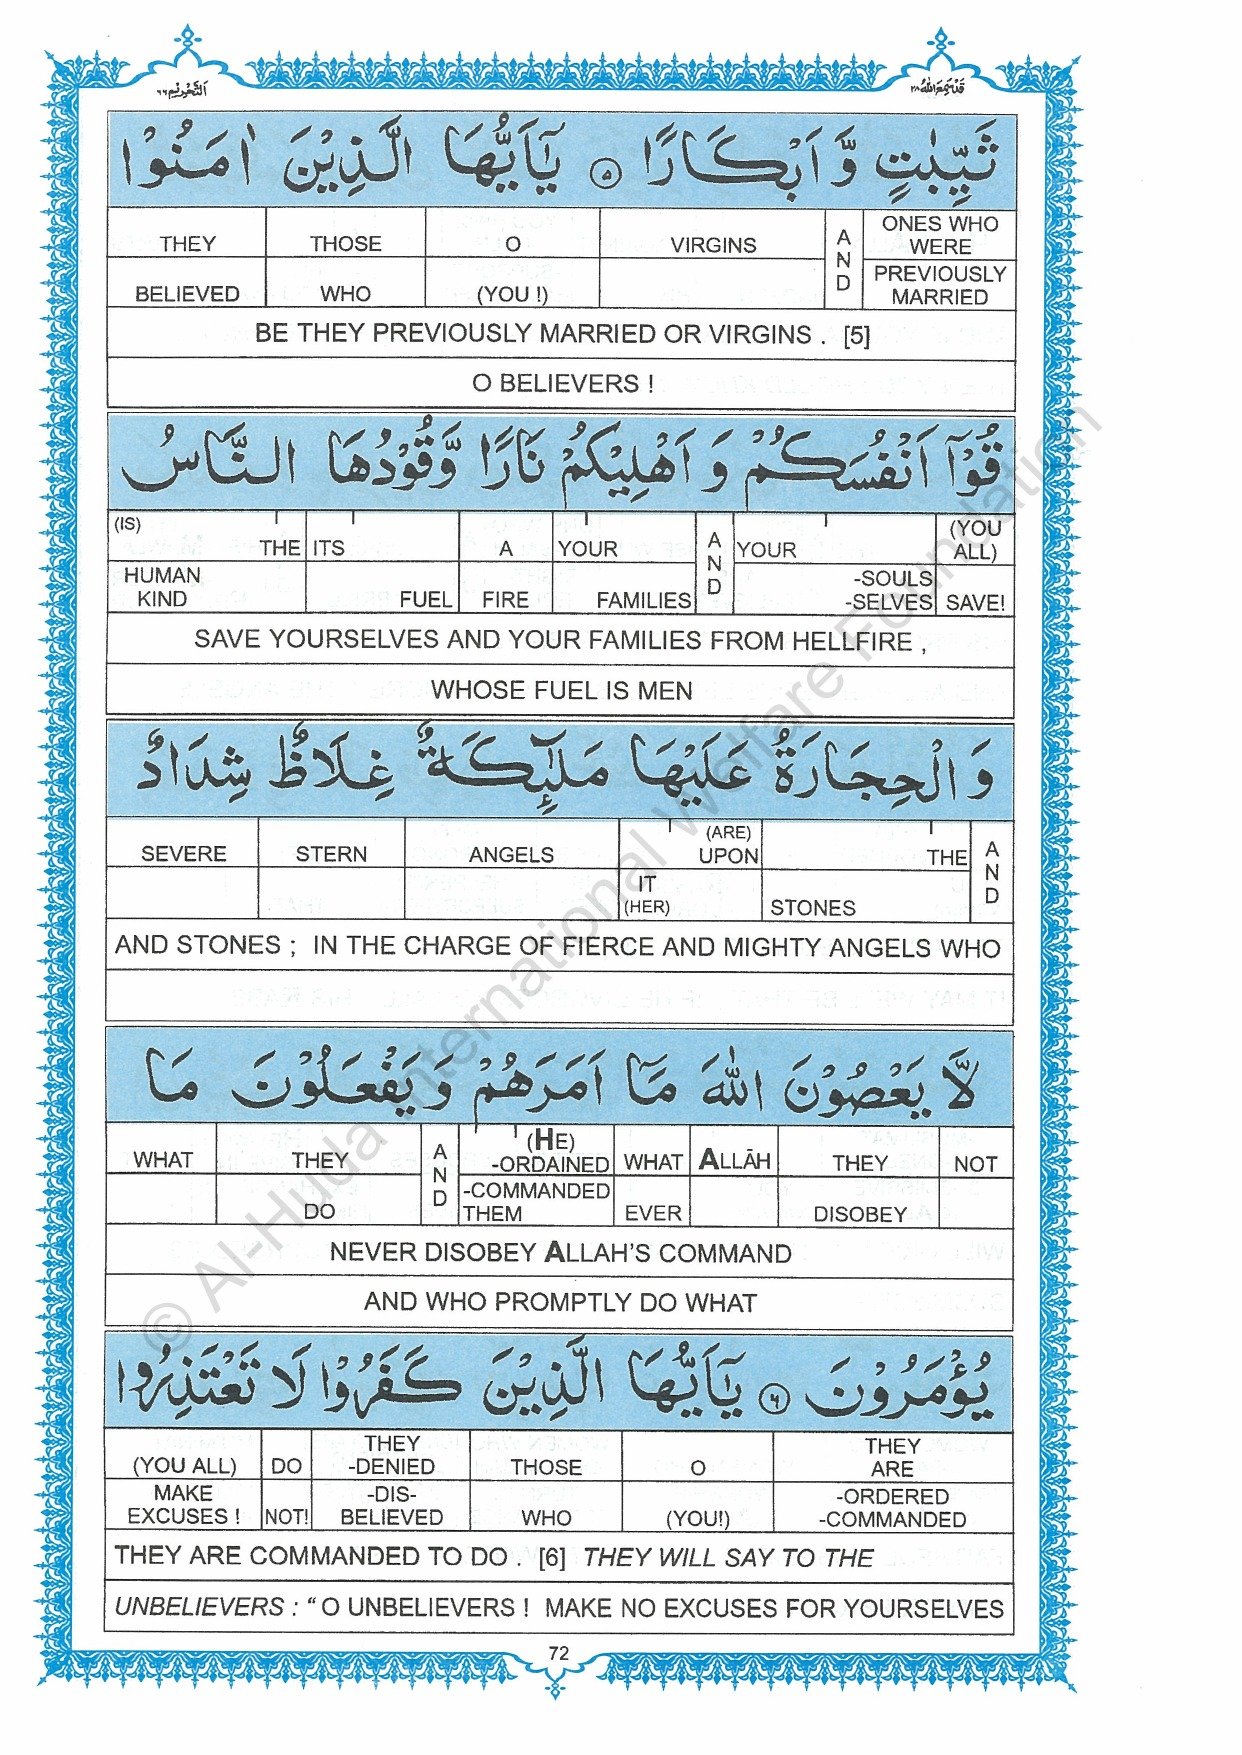 التحريم ٦٦
قد سمع الله ٢٨
ثَيِّبٰتٍ وَّ اَبْكَارًا ۝٥ يٰۤاَيُّهَا الَّذِيْنَ اٰمَنُوْا
THEY THOSE O VIRGINS AND ONES WHO WERE
BELIEVED WHO (YOU !) PREVIOUSLY MARRIED
BE THEY PREVIOUSLY MARRIED OR VIRGINS . [5]
O BELIEVERS !
قُوْۤا اَنْفُسَكُمْ وَ اَهْلِيْكُمْ نَارًا وَّقُوْدُهَا النَّاسُ
(IS) THE ITS A YOUR AND YOUR (YOU ALL)
HUMAN KIND FUEL FIRE FAMILIES -SOULS -SELVES SAVE!
SAVE YOURSELVES AND YOUR FAMILIES FROM HELLFIRE ,
WHOSE FUEL IS MEN
وَ الْحِجَارَةُ عَلَيْهَا مَلٰٓئِكَةٌ غِلَاظٌ شِدَادٌ
SEVERE STERN ANGELS (ARE) UPON THE AND
IT (HER) STONES
AND STONES ; IN THE CHARGE OF FIERCE AND MIGHTY ANGELS WHO
لَّا يَعْصُوْنَ اللّٰهَ مَاۤ اَمَرَهُمْ وَ يَفْعَلُوْنَ مَا
WHAT THEY AND (HE) -ORDAINED WHAT ALLĀH THEY NOT
DO -COMMANDED THEM EVER DISOBEY
NEVER DISOBEY ALLAH'S COMMAND
AND WHO PROMPTLY DO WHAT
يُؤْمَرُوْنَ ۝٦ يٰۤاَيُّهَا الَّذِيْنَ كَفَرُوْا لَا تَعْتَذِرُوا
(YOU ALL) DO THEY -DENIED THOSE O THEY ARE
MAKE EXCUSES ! NOT! -DIS- BELIEVED WHO (YOU!) -ORDERED -COMMANDED
THEY ARE COMMANDED TO DO . [6] THEY WILL SAY TO THE
UNBELIEVERS : “ O UNBELIEVERS ! MAKE NO EXCUSES FOR YOURSELVES
72
© Al-Huda International Welfare Foundation